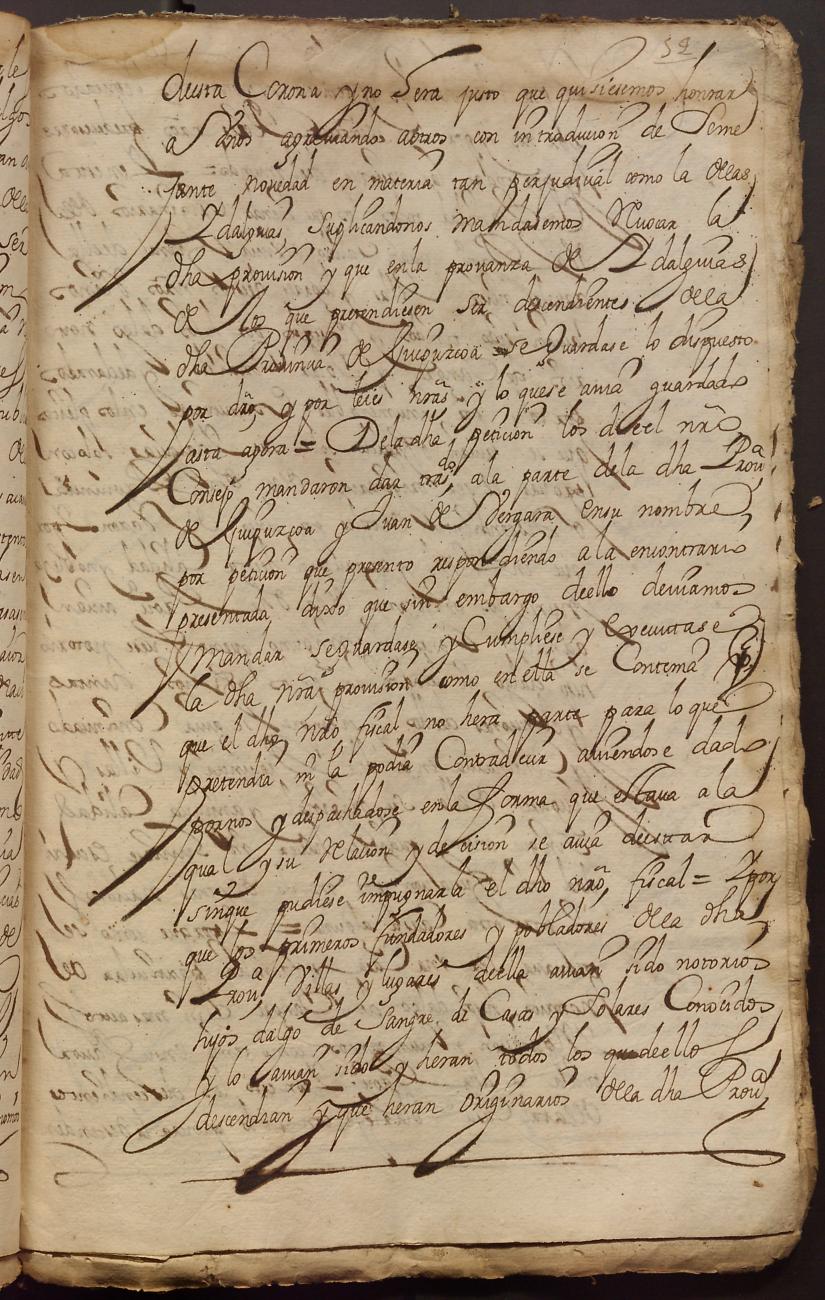 52
desta Corona y no sera justo que quisiesemos honrar
a unos agraviando a otros con introducion de seme
jante novedad en materia tan perjudicial como la de las
Ydalguias suplicandonos mandasemos Revocar la
dha provision y que en la provanza de Ydalguias
de los que pretendiesen ser descendientes della
dha Provincia de Guipuzcoa se guardase lo dispuesto
por dro y por leies nras y lo que se avia guardado
asta agora = De la dha peticion los del nro
Consejo mandaron dar traslado a la parte de la dha Prova
de Guipuzcoa y Juan de Vergara en su nombre
por peticion que presento respondiendo a la en contrario
presentada dixo que sin embargo dello deviamos
mandar se guardase y Cumpliese y executase
la dha nra provision como en ella se Contenia
que el dho nro fiscal no hera parte para lo que
pretendia ni la podia Contradecir aviendose dado
por nos y despachadose en la forma que estava a la
qual y su Relacion y decision se avia de estar
sin que pudiese impugnarla el dho nro fiscal = Y por
que los primeros fundadores y pobladores de la dha
Prova Villas y lugares della avian sido notorios
hijos dalgo de sangre de Casas y Solares Conocidos
y lo avian sido y heran todos los que dellos
descendian y que heran originarios de la dha Prova